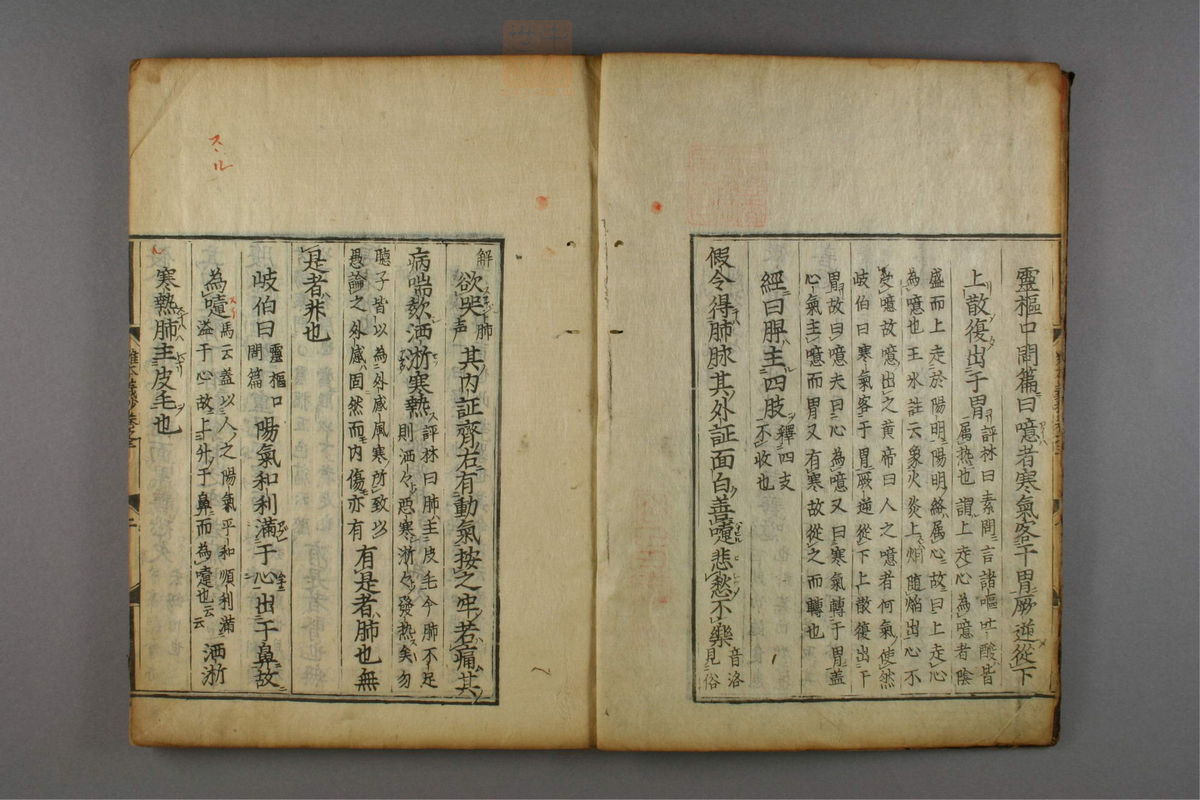 靈樞口問篇曰噫者寒氣客于胃厥逆從下
上散復出于胃
評林曰素問言諸嘔吐酸皆
属热也謂上走心為噫者陰
盛而上走於陽明陽明絡属心故曰上走心
為噫也王氷註云象火炎上烟随焰出心不
受噫故噫出之黄帝曰人之噫者何氣使然
岐伯曰寒氣客于胃厥逆從下上散復出于
胃故曰噫夫曰心為噫又曰寒氣轉于胃蓋
心氣主噫而胃又有寒故從之而轉也
經曰脾主四肢
釋四支
不收也
假令得肺脉其外証面白善嚔悲愁不樂
音洛
見俗
解
欲哭
肺
声
其内証齊右有動氣按之牢若痛其
病喘欬洒淅寒熱
評林曰肺主皮毛今肺不足
則洒々悪寒淅々發热矣勿
聴子皆以為外感風寒所致以
愚論之外感固然而内傷亦有
有是者肺也無
是者非也
岐伯曰
靈樞口
問篇
陽氣和利滿于心出于鼻故
為嚔
馬云蓋以人之陽氣平和順利滿
溢于心故上升于鼻而為嚔也云云
洒淅
寒熱肺主皮毛也
スル